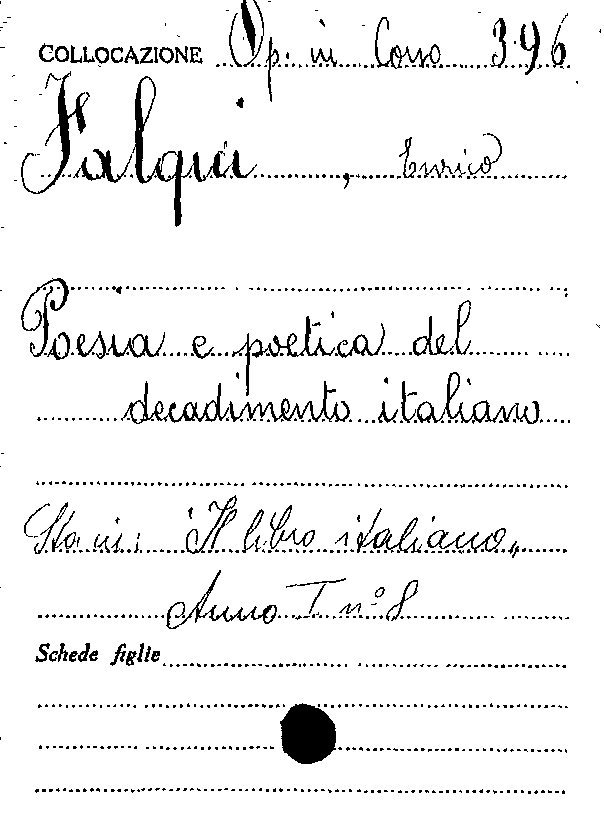 COLLOCAZIONE Op. in Corso 396
Falqui, Enrico
Poesia e poetica del
decadimento italiano
Sta in: "Il libro italiano"
Anno I n° 8
Schede figlie